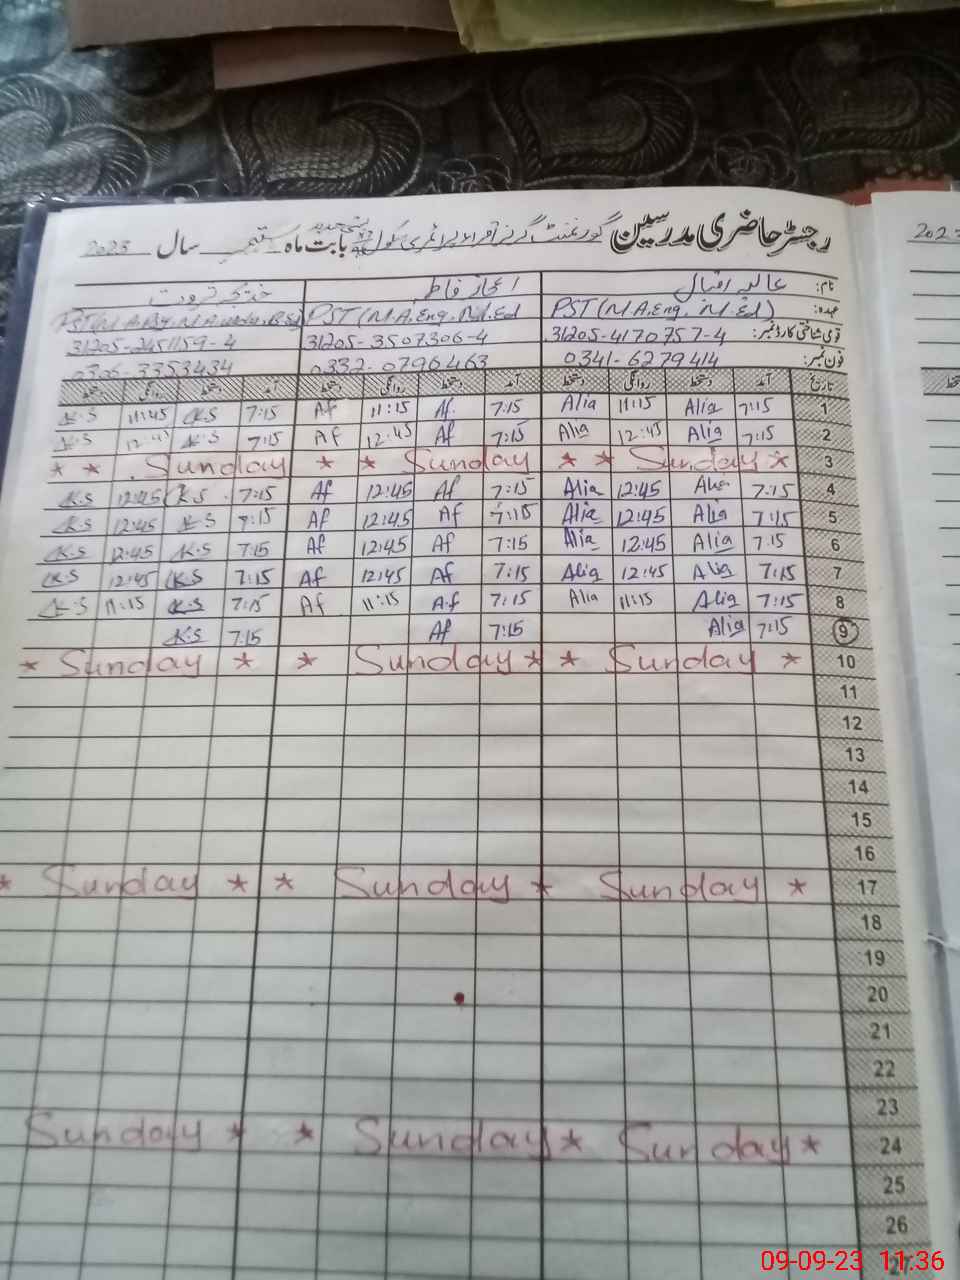 رجسٹر حاضری مدرسین گورنمنٹ گرلز پرائمری سکول بابت ماہ ستمبر سال 2023
2023
نام: عالیہ اقبال اعجاز فاطمہ
عہدہ: PST (M.A.Eng, M.Ed) PST (M.A.Eng, M.Ed
قومی شناختی کارڈ نمبر: 31205-4170757-4 31205-3507306-4 31205-2451159-4
فون نمبر: 0341-6279414 0332-0796463 0306-3353434
تاریخ آمد دستخط روانگی دستخط آمد دستخط روانگی دستخط آمد دستخط روانگی دستخط
1 7:15 Alia 11:15 Alia 7:15 Af 11:15 Af 7:15 K.S 11:45 K.S
2 7:15 Alia 12:45 Alia 7:15 Af 12:45 Af 7:15 K.S 12:45 K.S
3 * Sunday * * Sunday * * Sunday * *
4 7:15 Alia 12:45 Alia 7:15 Af 12:45 Af 7:15 K.S 12:45 K.S
5 7:15 Alia 12:45 Alia 7:15 Af 12:45 Af 7:15 K.S 12:45 K.S
6 7:15 Alia 12:45 Alia 7:15 Af 12:45 Af 7:15 K.S 12:45 K.S
7 7:15 Alia 12:45 Alia 7:15 Af 12:45 Af 7:15 K.S 12:45 K.S
8 7:15 Alia 11:15 Alia 7:15 Af 11:15 Af 7:15 K.S 11:15 K.S
9 7:15 Alia 7:15 Af 7:15 K.S
10 * Sunday * * Sunday * * Sunday *
11
12
13
14
15
16
17 * Sunday * Sunday * * Sunday *
18
19
20
21
22
23
24 * Sunday * Sunday * * Sunday
25
26
27
09-09-23 11:36